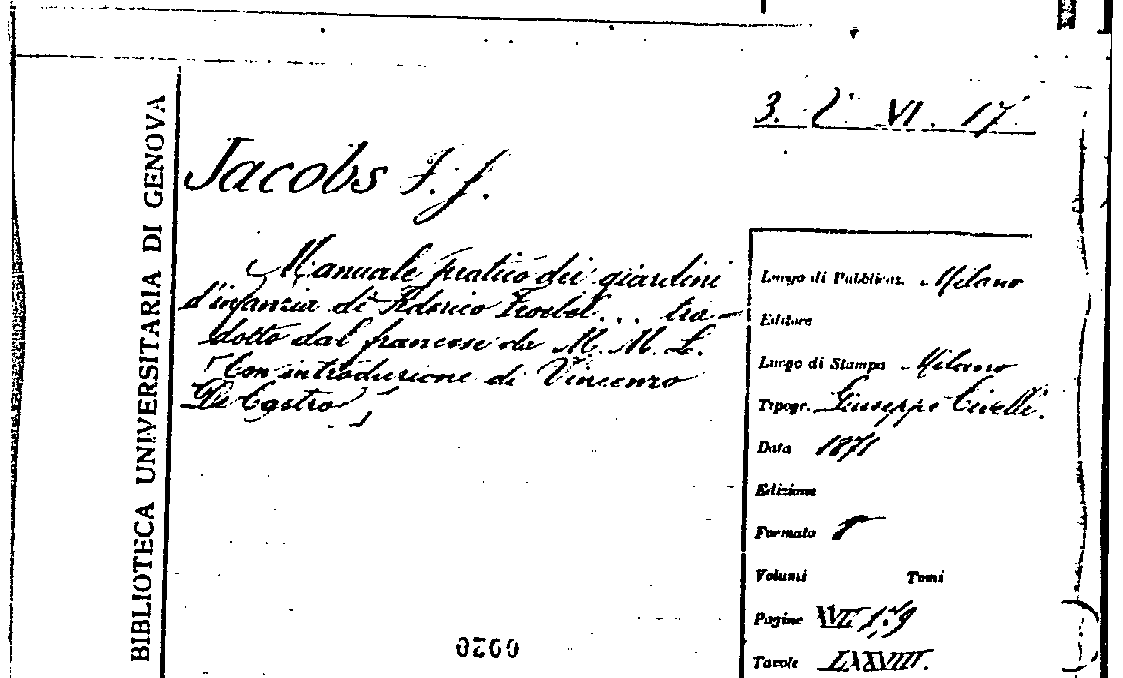 BIBLIOTECA UNIVERSITARIA DI GENOVA
3. VI. 17
Jacobs F. J.
Manuale pratico dei giardini
d'infanzia di Federico Froebel... tra-
dotto dal francese da M. M. L.
Con introduzione di Vincenzo
De Castro
Luogo di Pubblicaz. Milano
Editore
Luogo di Stampa Milano
Tipogr. Giuseppe Civelli.
Data 1871
Edizione
Formato
Volumi Tomi
Pagine
Tavole LXXVIII.